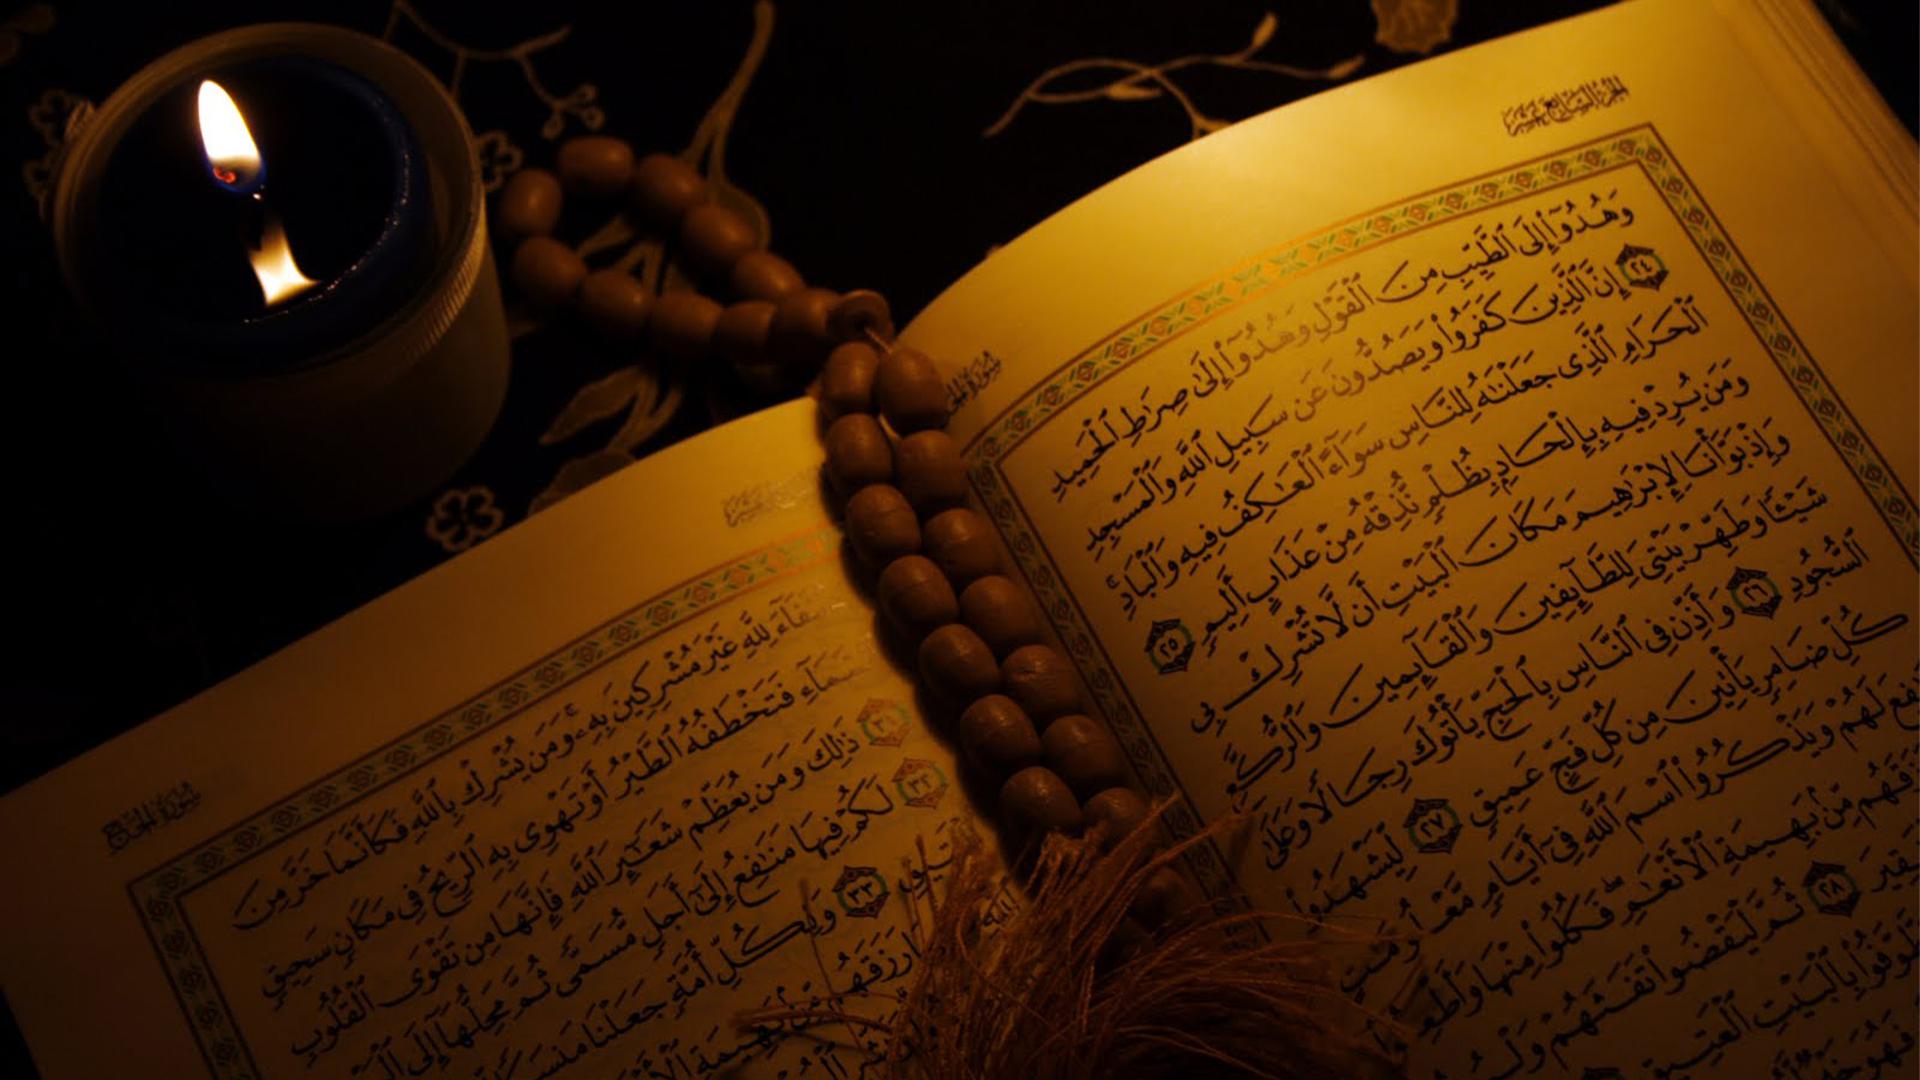 الجزء السابع عشر
وَهُدُوٓا۟ إِلَى ٱلطَّيِّبِ مِنَ ٱلْقَوْلِ وَهُدُوٓا۟ إِلَىٰ صِرَٰطِ ٱلْحَمِيدِ
٢٤ إِنَّ ٱلَّذِينَ كَفَرُوا۟ وَيَصُدُّونَ عَن سَبِيلِ ٱللَّهِ وَٱلْمَسْجِدِ
ٱلْحَرَامِ ٱلَّذِى جَعَلْنَٰهُ لِلنَّاسِ سَوَآءً ٱلْعَٰكِفُ فِيهِ وَٱلْبَادِ
وَمَن يُرِدْ فِيهِ بِإِلْحَادٍۭ بِظُلْمٍ نُّذِقْهُ مِنْ عَذَابٍ أَلِيمٍ ٢٥
وَإِذْ بَوَّأْنَا لِإِبْرَٰهِيمَ مَكَانَ ٱلْبَيْتِ أَن لَّا تُشْرِكْ بِى
شَيْـًٔا وَطَهِّرْ بَيْتِىَ لِلطَّآئِفِينَ وَٱلْقَآئِمِينَ وَٱلرُّكَّعِ
ٱلسُّجُودِ ٢٦ وَأَذِّن فِى ٱلنَّاسِ بِٱلْحَجِّ يَأْتُوكَ رِجَالًا وَعَلَىٰ
كُلِّ ضَامِرٍ يَأْتِينَ مِن كُلِّ فَجٍّ عَمِيقٍ ٢٧ لِّيَشْهَدُوا۟
لَهُمْ وَيَذْكُرُوا۟ ٱسْمَ ٱللَّهِ فِىٓ أَيَّامٍ مَّعْلُومَٰتٍ
مِّنۢ بَهِيمَةِ ٱلْأَنْعَٰمِ فَكُلُوا۟ مِنْهَا
٢٨ ثُمَّ لْيَقْضُوا۟ تَفَثَهُمْ
بِٱلْبَيْتِ ٱلْعَتِيقِ
سورة الحج
لِلَّهِ غَيْرَ مُشْرِكِينَ بِهِۦ وَمَن يُشْرِكْ بِٱللَّهِ فَكَأَنَّمَا خَرَّ مِنَ
فَتَخْطَفُهُ ٱلطَّيْرُ أَوْ تَهْوِى بِهِ ٱلرِّيحُ فِى مَكَانٍ سَحِيقٍ
٣١ ذَٰلِكَ وَمَن يُعَظِّمْ شَعَٰٓئِرَ ٱللَّهِ فَإِنَّهَا مِن تَقْوَى ٱلْقُلُوبِ
٣٢ لَكُمْ فِيهَا مَنَٰفِعُ إِلَىٰٓ أَجَلٍ مُّسَمًّى ثُمَّ مَحِلُّهَآ إِلَى
٣٣ وَلِكُلِّ أُمَّةٍ جَعَلْنَا
رَزَقَهُم مِّنۢ بَهِيمَةِ